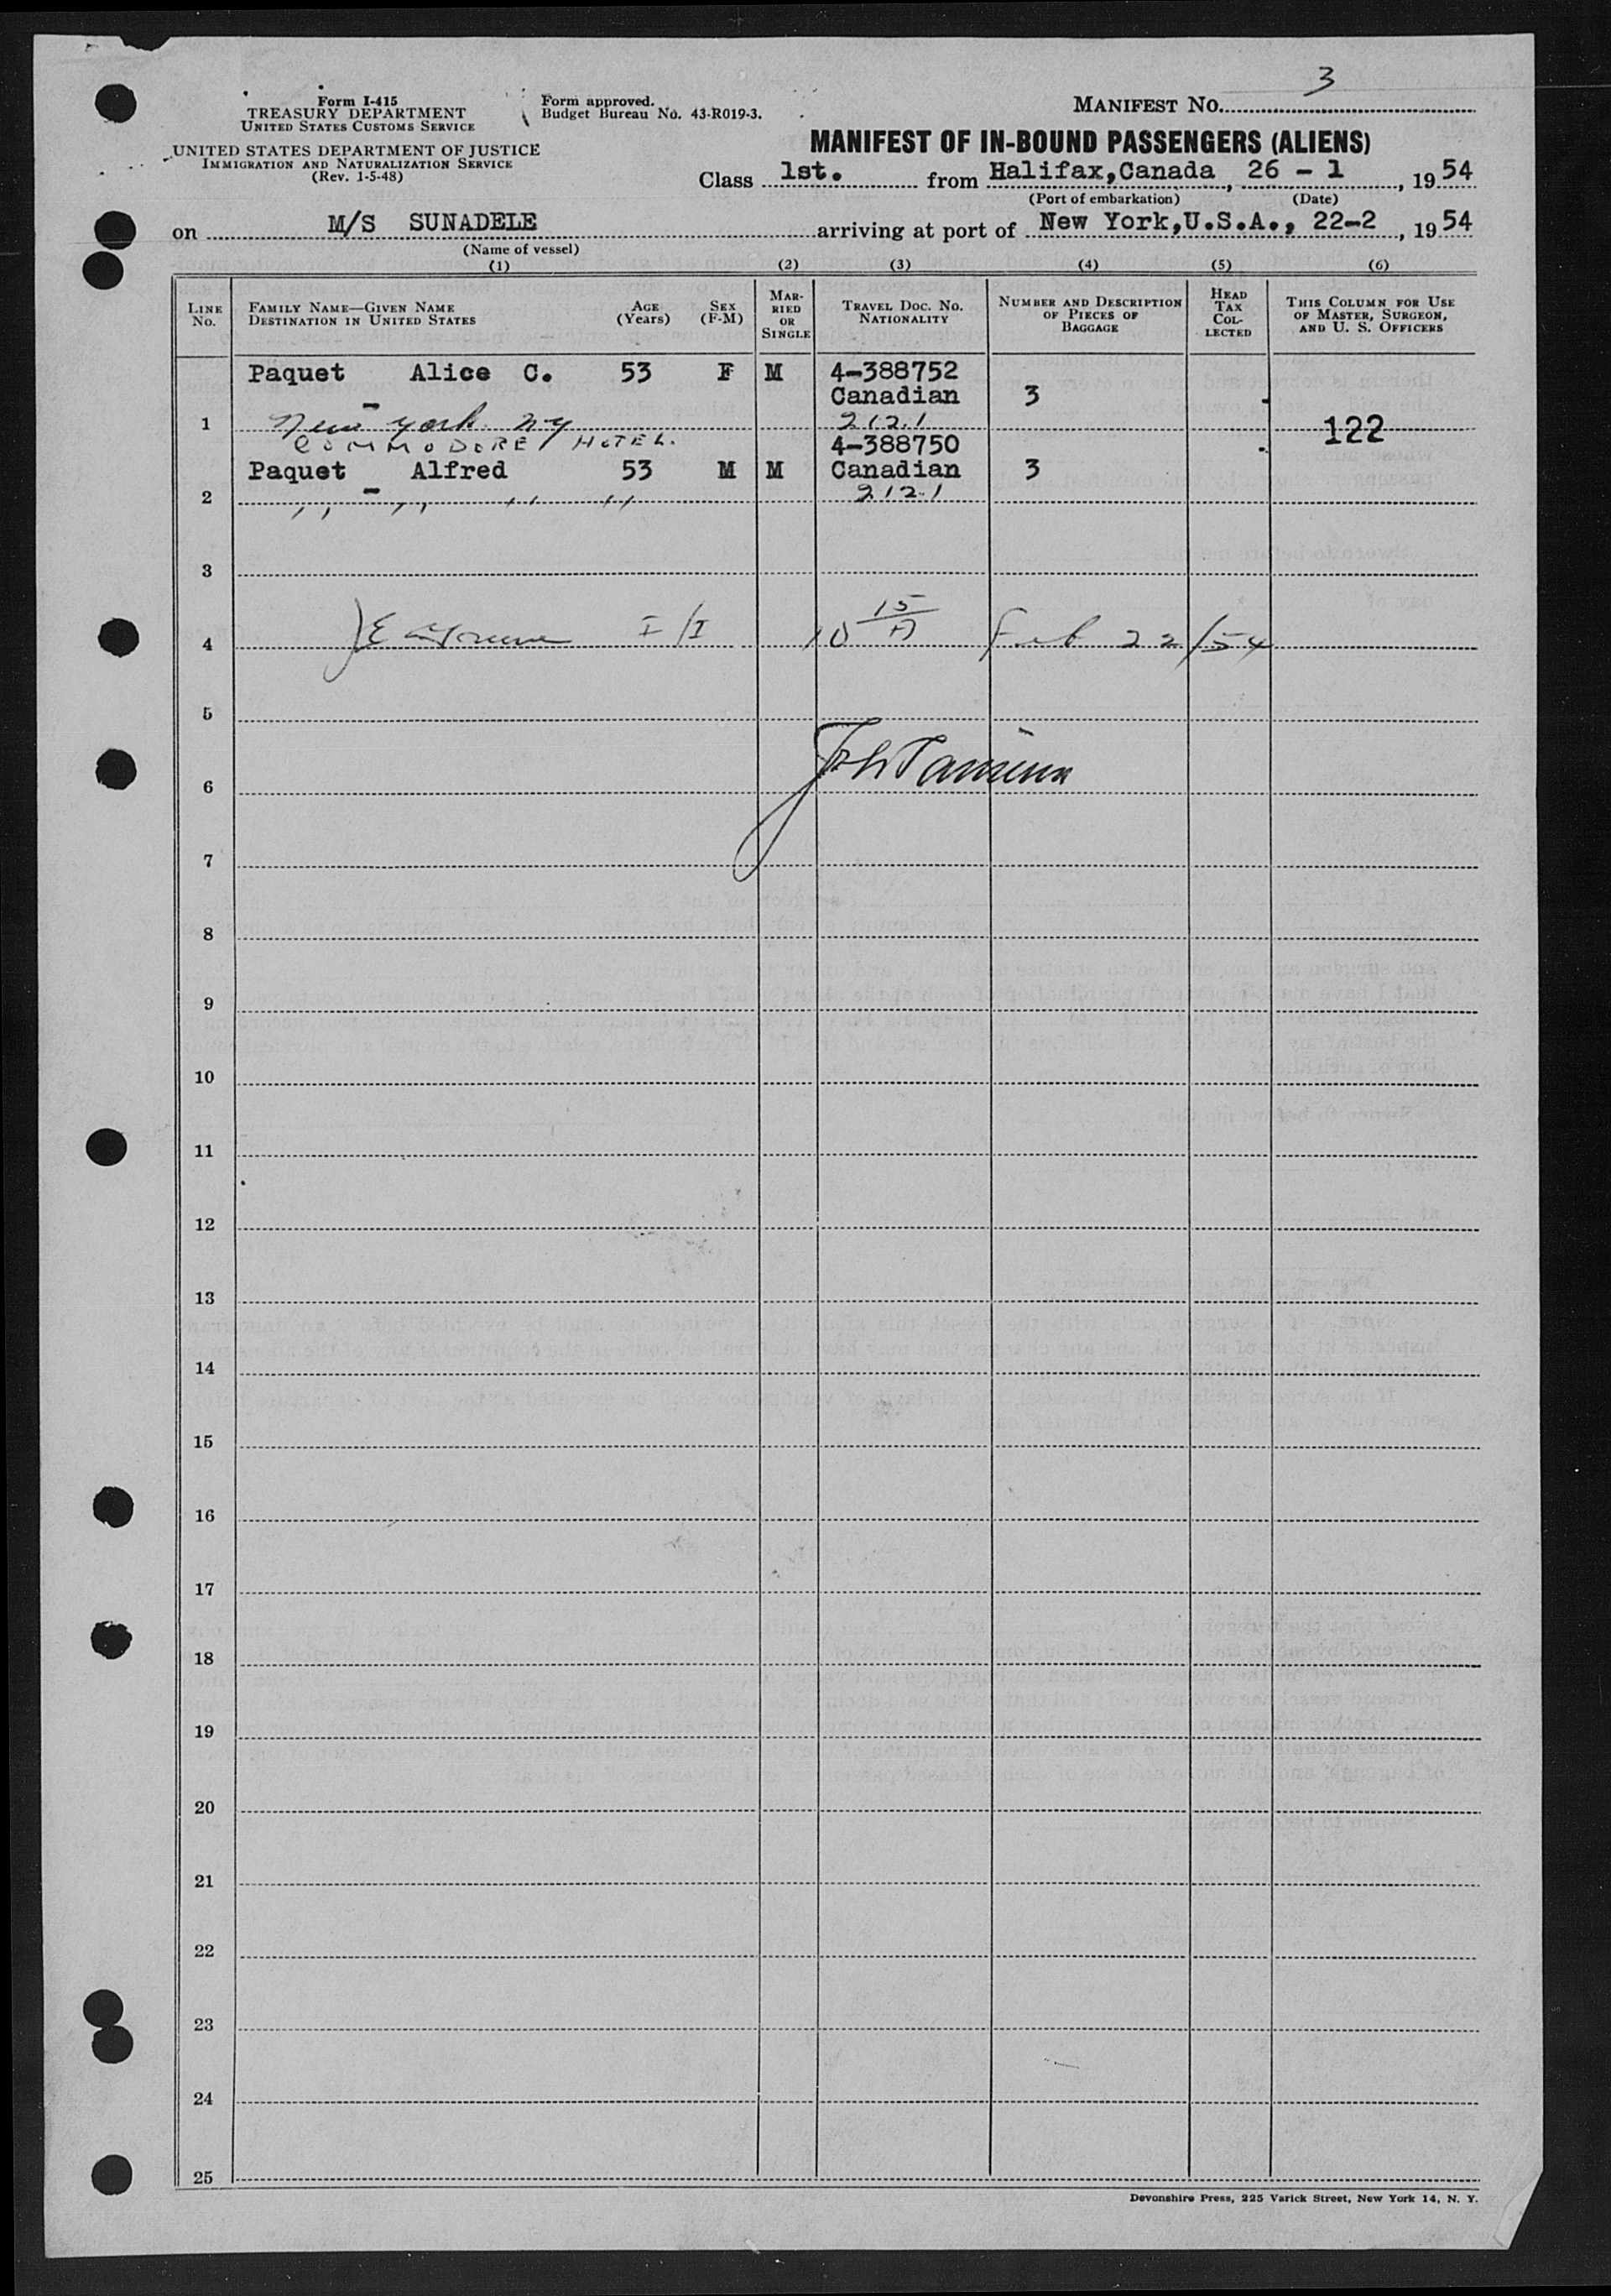 3
Form I-415
TREASURY DEPARTMENT
UNITED STATES CUSTOMS SERVICE
Form approved.
Budget Bureau No. 43-R019-3.
MANIFEST No.
UNITED STATES DEPARTMENT OF JUSTICE
IMMIGRATION AND NATURALIZATION SERVICE
(Rev. 1-5-48)
MANIFEST OF IN-BOUND PASSENGERS (ALIENS)
Class 1st. from Halifax,Canada, 26 - 1, 1954
(Port of embarkation) (Date)
on M/S SUNADELE arriving at port of New York,U.S.A., 22-2, 1954
(Name of vessel)
(1) (2) (3) (4) (5) (6)
LINE No. FAMILY NAME—GIVEN NAME DESTINATION IN UNITED STATES AGE (Years) SEX (F-M) MAR-RIED OR SINGLE TRAVEL DOC. NO. NATIONALITY NUMBER AND DESCRIPTION OF PIECES OF BAGGAGE HEAD TAX COL-LECTED THIS COLUMN FOR USE OF MASTER, SURGEON, AND U. S. OFFICERS
Paquet Alice C. 53 F M 4-388752
Canadian 3
1 New York. NY 2121 122
COMMODORE HOTEL. 4-388750
Paquet Alfred 53 M M Canadian 3
2 ,, ,, ,, ,, 212.1
3
4 I/I 10 15/A Feb 22/54
5
6
7
8
9
10
11
12
13
14
15
16
17
18
19
20
21
22
23
24
25
Devonshire Press, 225 Varick Street, New York 14, N. Y.